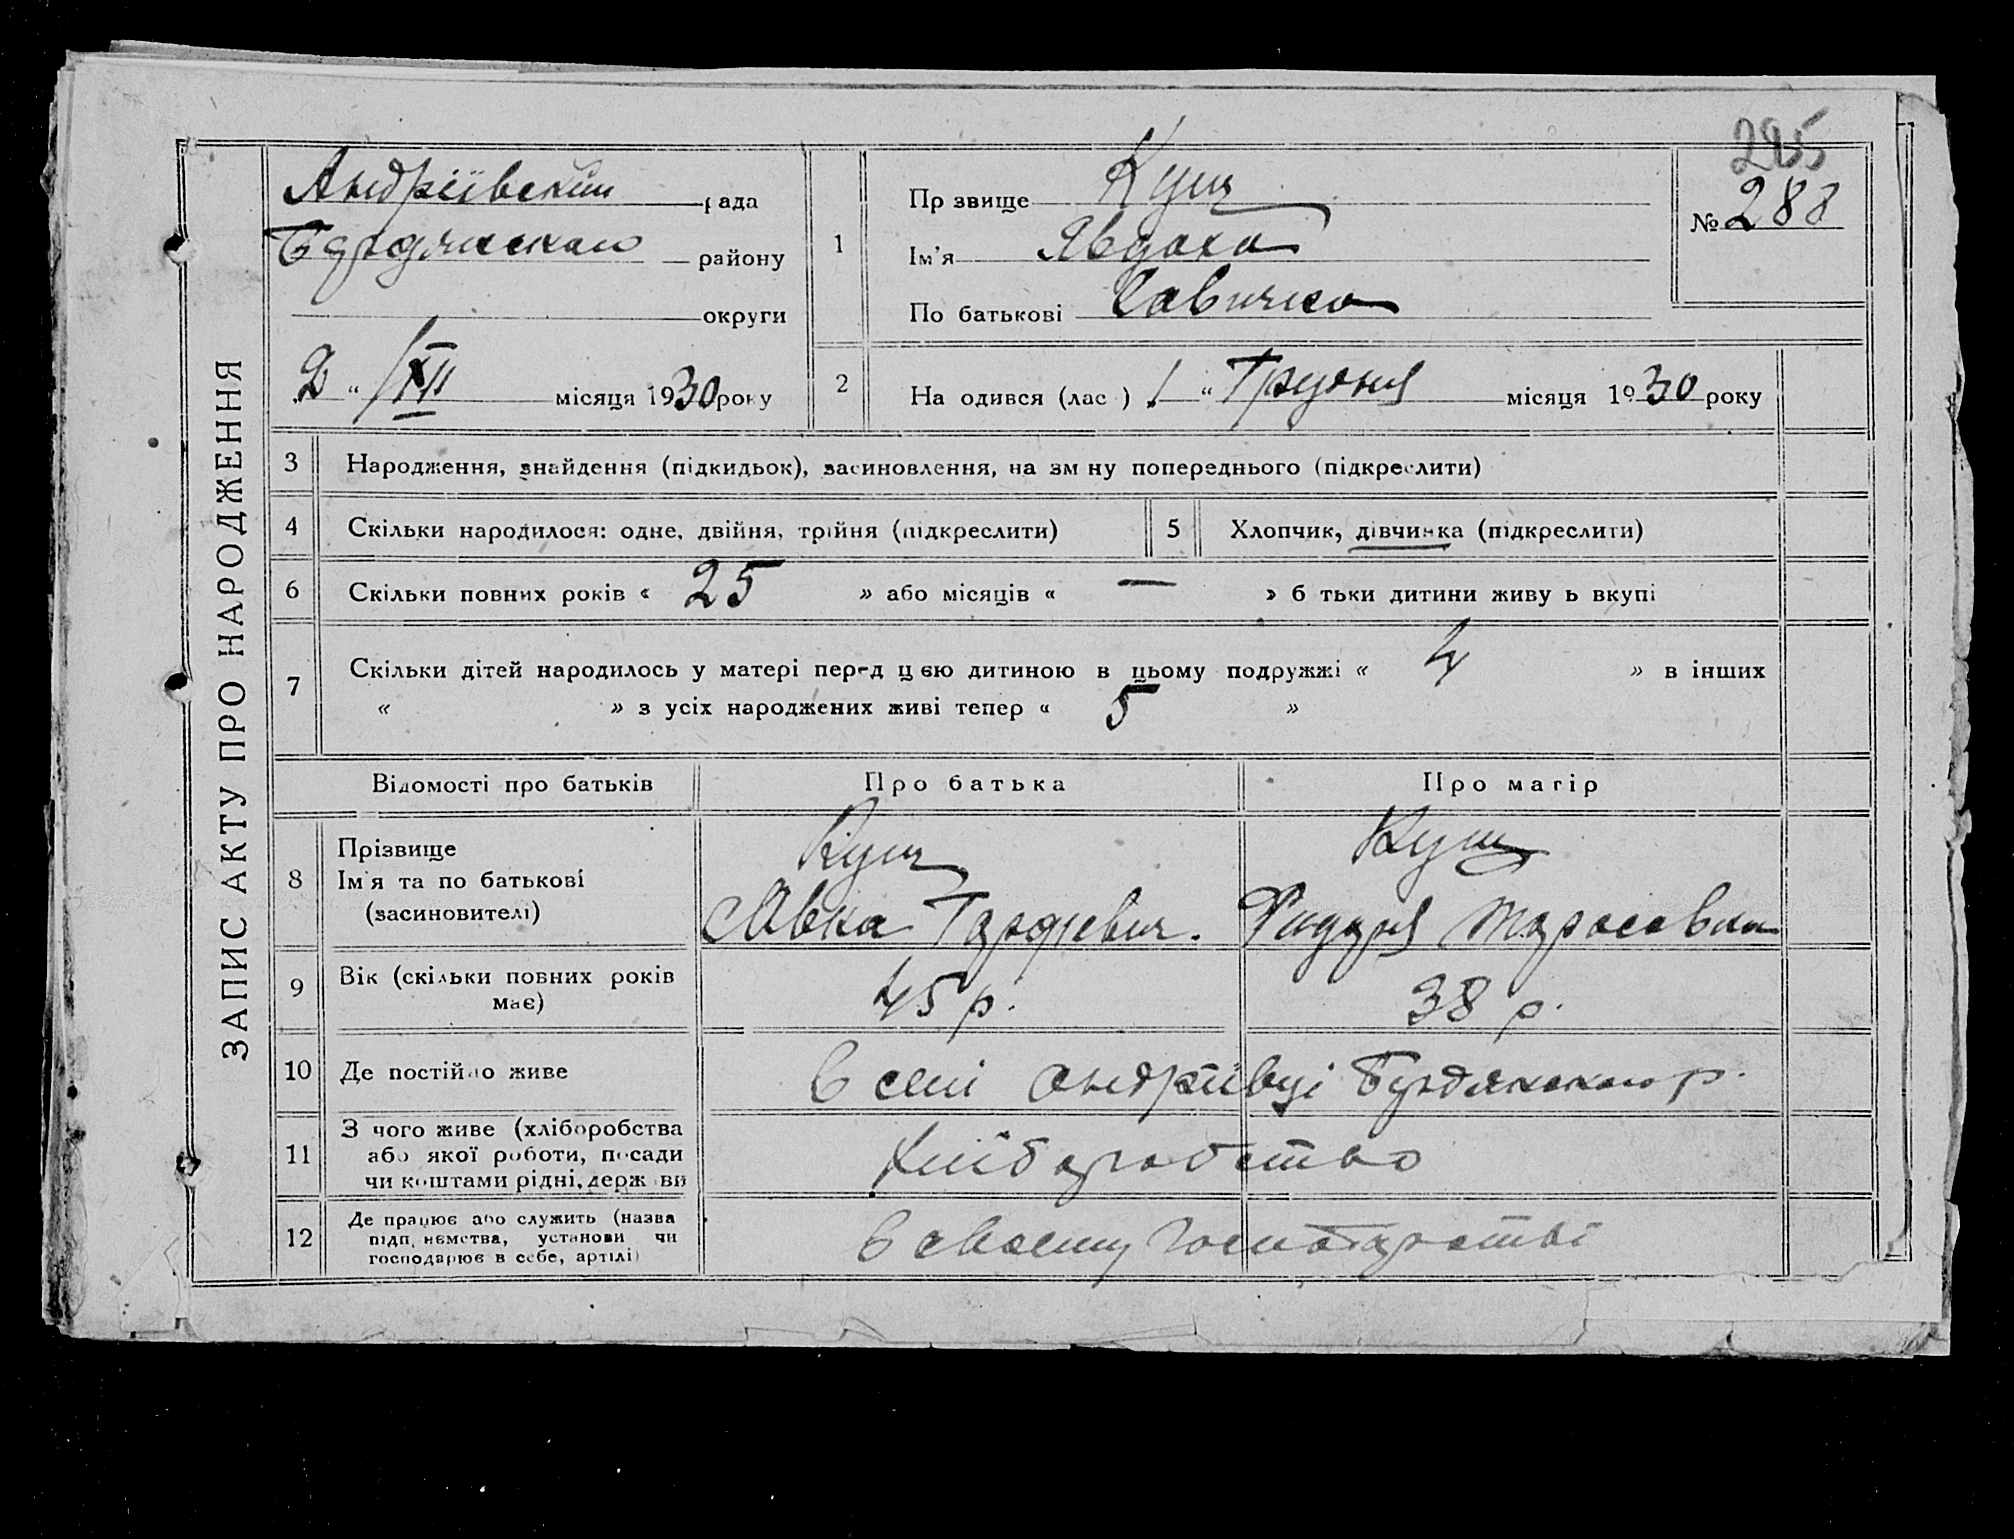 ЗАПИС АКТУ ПРО НАРОДЖЕННЯ
285
Андріївский рада
Бердянского району
округи
2 " /XII місяця 1930 року
1 Пр звище Кущ
Ім'я Явдоха
По батькові Савична
№ 288
2 На одився (лас ) 1 " Грудня місяця 1930 року
3 Народження, знайдення (підкидьок), засиновлення, на зм ну попереднього (підкреслити)
4 Скільки народилося: одне, двійня, трійня (підкреслити)
5 Хлопчик, дівчинка (підкреслити)
6 Скільки повних років « 25 » або місяців « — » б тьки дитини живу ь вкупі
7 Скільки дітей народилось у матері перед цією дитиною в цьому подружжі « 4 » в інших
« » з усіх народжених живі тепер « 5 »
Відомості про батьків Про батька Про матір
8 Прізвище
Ім'я та по батькові
(засиновителі)
Кущ
Савка Гордієвич.
Кущ
Тарасовна
9 Вік (скільки повних років
має)
45 р. 38 р.
10 Де постійно живе в селі Андріївці Бердянского р.
11 З чого живе (хліборобства
або якої роботи, посади
чи коштами рідні, держ ви
Хліборобство
12 Де працює або служить (назва
підп ємства, установи чи
господарює в себе, артілі)
В своєму господарстві